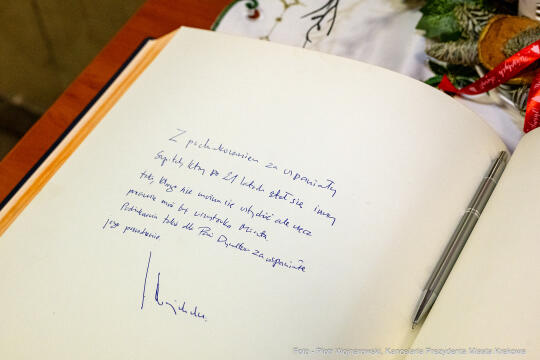 Z podziękowaniem za wspaniały
Szpital, który po 21 latach stał się inny
taki, którego nie można się wstydzić ale wręcz
przeciwnie może być wizytówką Miasta.
Podziękowania także dla Pani Dyrektor za wspaniałe
jego prowadzenie.
Foto - Piotr Wojnarowski, Kancelaria Prezydenta Miasta Krakowa